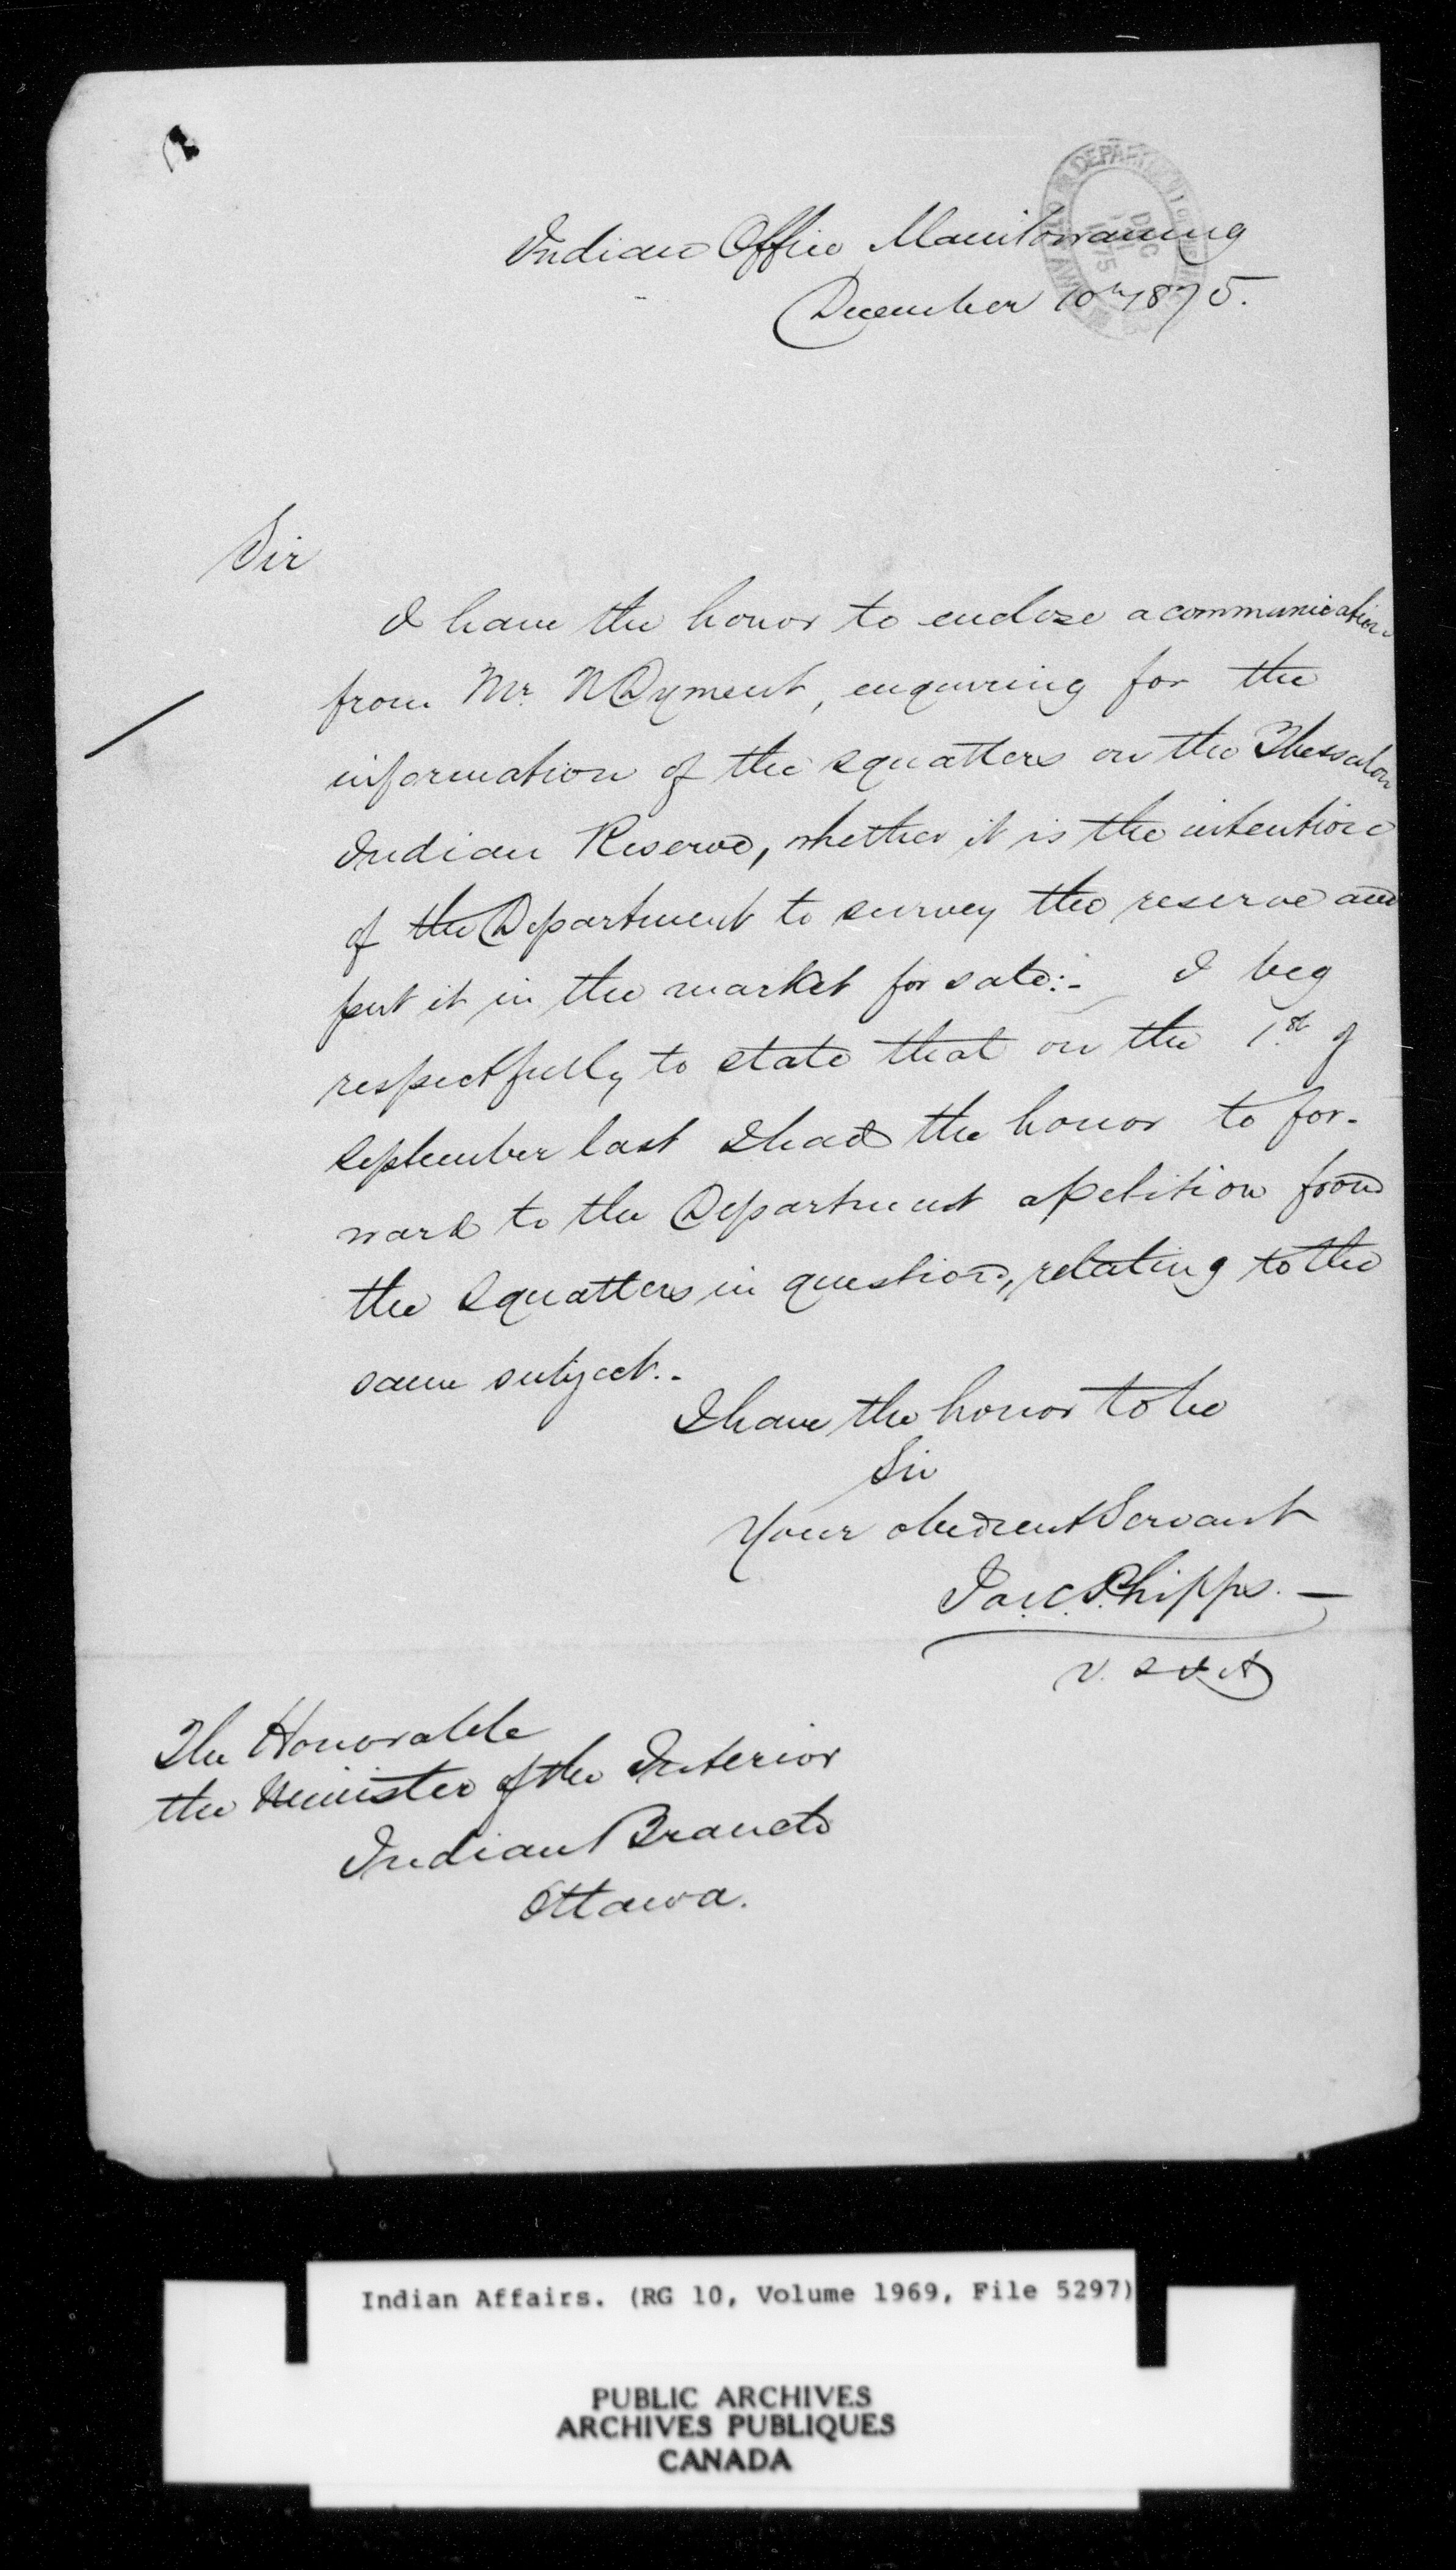 Indian Office Manitowaning
December 10th 1875.
DEPARTMENT OF
DEC
1875
OTTAWA
Sir
I have the honor to enclose a communication
from Mr. N Dyment, enquiring for the
information of the squatters on the Thessalon
Indian Reserve, whether it is the intention
of the Department to survey the reserve and
put it in the market for sale:- I beg
respectfully to state that on the 1st of
September last I had the honor to for-
ward to the Department a Petition from
the Squatters in question, relating to the
same subject.-
I have the honor to be
Sir
Your obedient Servant
Jas. C. Phipps. —
V. S I A
The Honorable
the Minister of the Interior
Indian Branch
Ottawa.
Indian Affairs. (RG 10, Volume 1969, File 5297)
PUBLIC ARCHIVES
ARCHIVES PUBLIQUES
CANADA